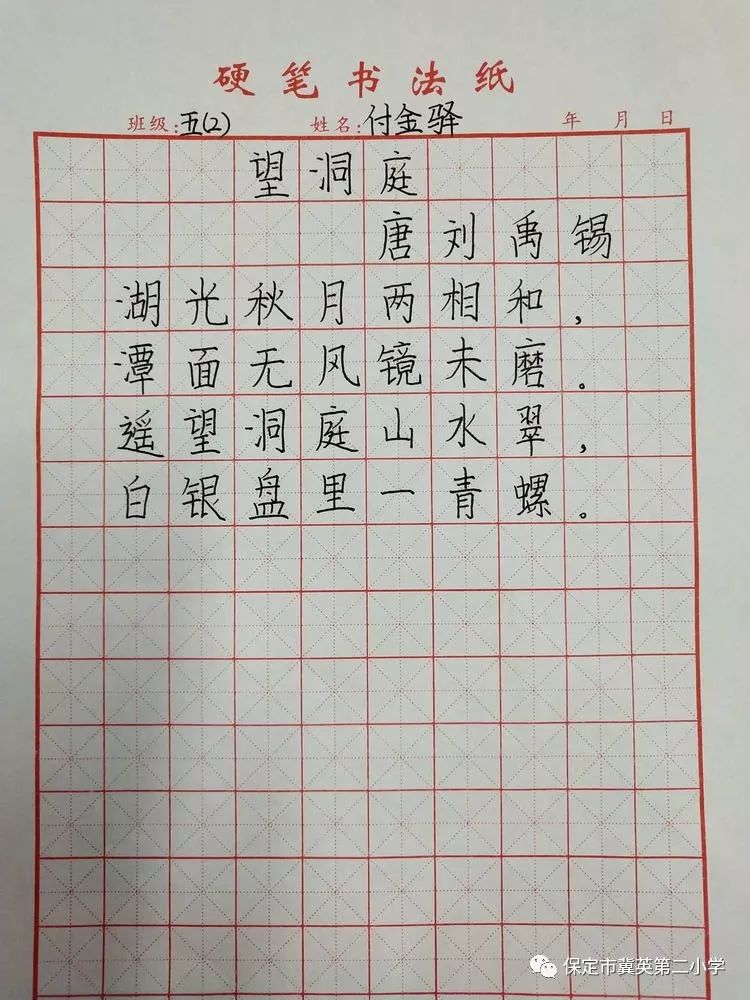 硬笔书法纸
班级:五(2) 姓名:付金驿 年 月 日
望洞庭
唐刘禹锡
湖光秋月两相和,
潭面无风镜未磨。
遥望洞庭山水翠,
白银盘里一青螺。
保定市冀英第二小学